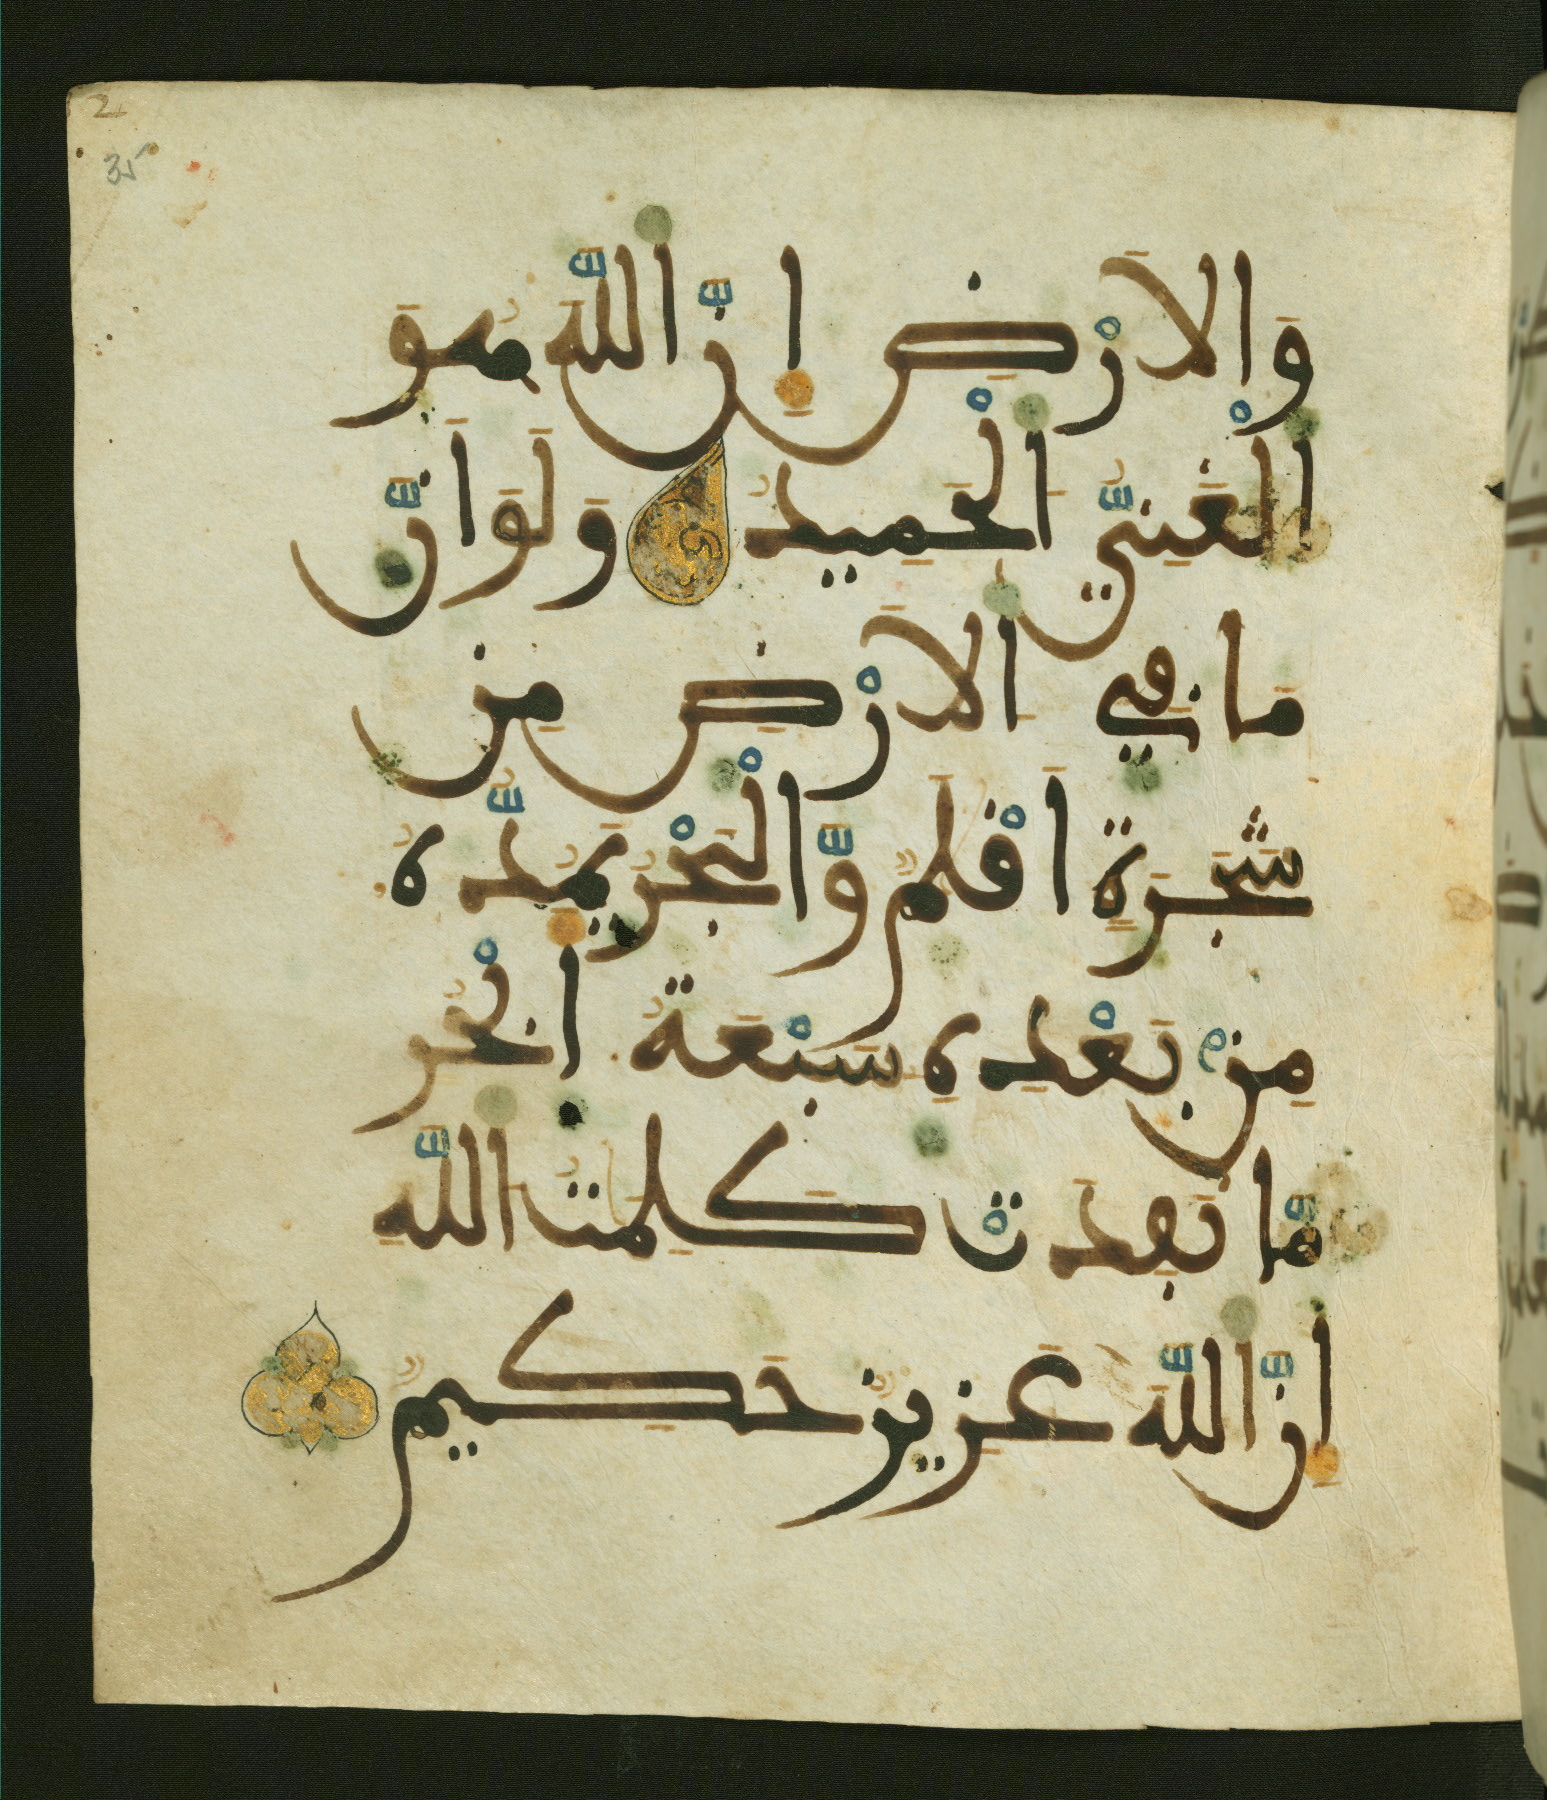 2
35
وَالاَرْضِ إِنَّ اَللَّهَ هُوَ
اَلْغَنِيُّ اَلْحَمِيدُ وَلَوَ اَنَّ
مَا فِي اِلاَرْضِ مِن
شَجَرَةٍ اَقْلَٰمٌ وَّالْبَحْرُ يَمُدُّهُ
مِنۢ بَعْدِهِ سَبْعَةُ أَبْحُرٍ
مَّا نَفِدَتْ كَلِمَٰتُ اُللَّهِ
إِنَّ اَللَّهَ عَزِيزٌ حَكِيمٌ